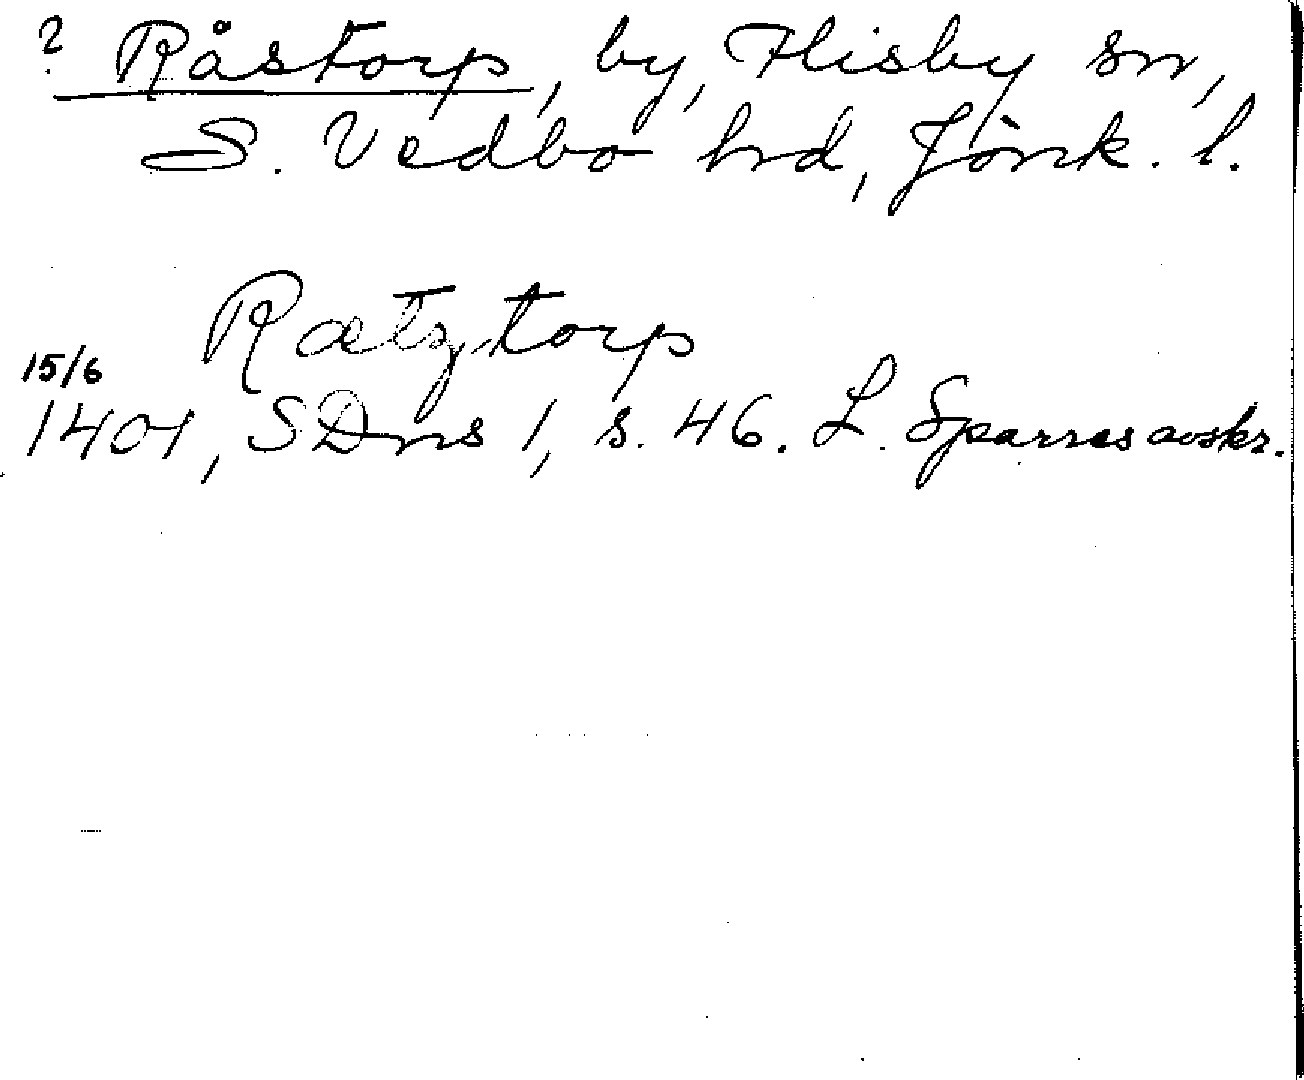 ? Råstorp, by, Flisby sn,
S. Vedbo hrd, Jönk. l.
Rætztorp
15/6
1401, SDns 1, s. 46. L. Sparres avskr.